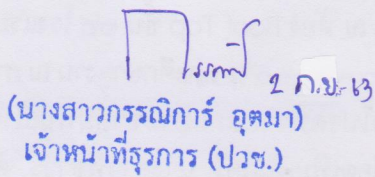 กรรณิการ์ 2 ก.ย. 63
(นางสาวกรรณิการ์ อุตมา)
เจ้าหน้าที่ธุรการ (ปวช.)